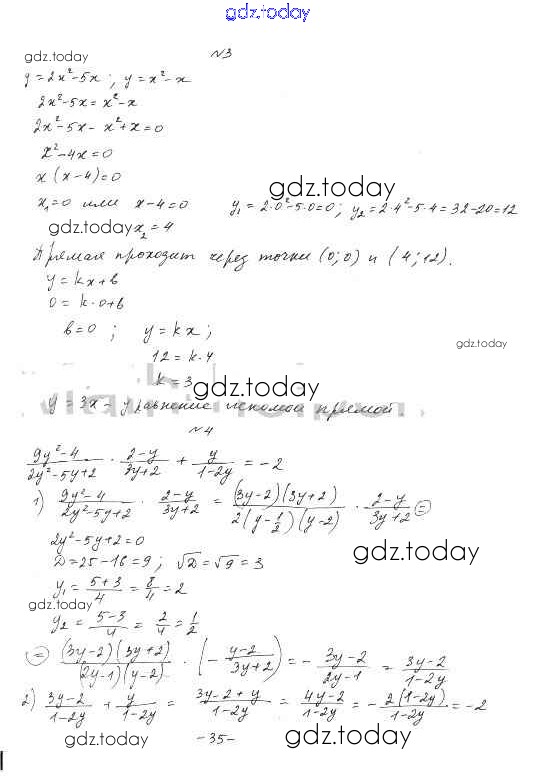 gdz.today
gdz.today
№3
y=2x²-5x; y=x²-x
2x²-5x=x²-x
2x²-5x-x²+x=0
x²-4x=0
x(x-4)=0
gdz.today
x₁=0 или x-4=0 y₁=2·0²-5·0=0; y₂=2·4²-5·4=32-20=12
gdz.today x₂=4
Прямая проходит через точки (0;0) и (4;12).
y=kx+b
0=k·0+b
b=0; y=kx;
gdz.today
12=k·4
k=3
gdz.today
y=3x- уравнение искомой прямой.
№4
(9y²-4)/(2y²-5y+2) · (2-y)/(3y+2) + y/(1-2y) = -2
1) (9y²-4)/(2y²-5y+2) · (2-y)/(3y+2) = ((3y-2)(3y+2))/(2(y-1/2)(y-2)) · (2-y)/(3y+2) =
2y²-5y+2=0
D=25-16=9; √D=√9=3
gdz.today
y₁=(5+3)/4=8/4=2
gdz.today
y₂=(5-3)/4=2/4=1/2
= ((3y-2)(3y+2))/((2y-1)(y-2)) · (-(y-2)/(3y+2)) = -(3y-2)/(2y-1) = (3y-2)/(1-2y)
2) (3y-2)/(1-2y) + y/(1-2y) = (3y-2+y)/(1-2y) = (4y-2)/(1-2y) = -(2(1-2y))/(1-2y) = -2
gdz.today
-35-
gdz.today